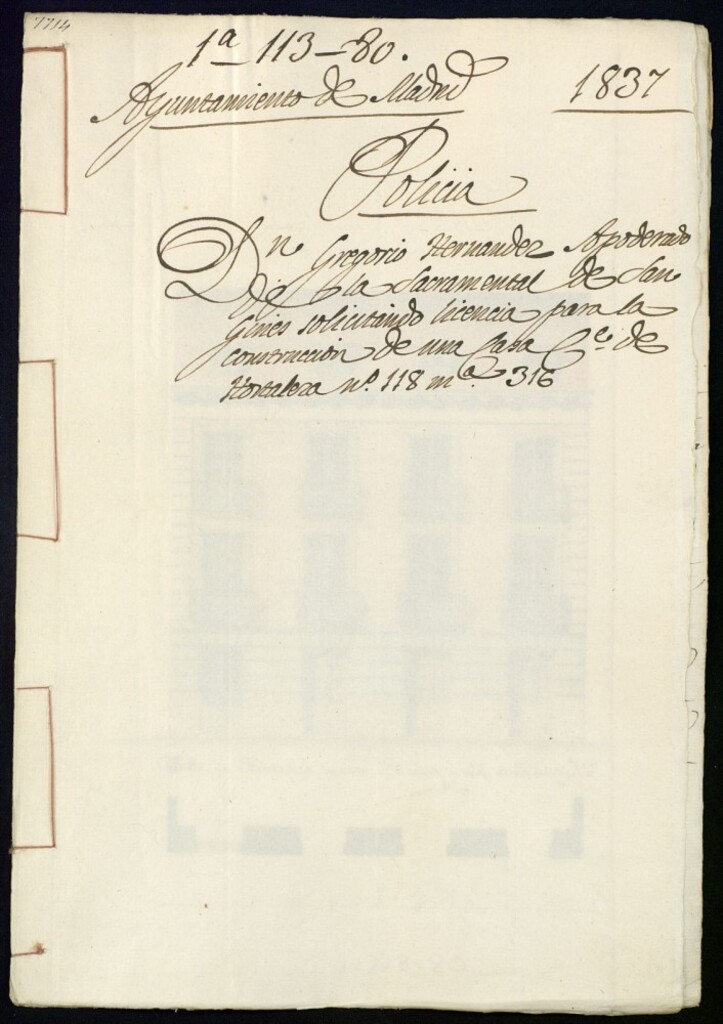 7714
1ª 113-80.
Ayuntamiento de Madrid
1837
Policia
Dn Gregorio Hernandez Apoderado
de la Sacramental de San
Gines solicitando licencia para la
construccion de una Casa Ce. de
Hortaleza nº. 118 mª. 316